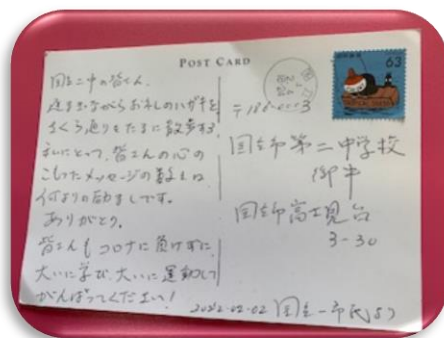 POST CARD
国立二中の皆さん
遅ればせながらお礼のハガキを
さくら通りをたまに散歩する
私にとって、皆さんの心の
こもったメッセージの数々は
何よりの励ましです。
ありがとう。
皆さんもコロナに負けずに
大いに学び、大いに運動して
がんばってください!
63
国立市第二中学校
御中
国立市富士見台
3-30
2022-02-02 国立一市民より